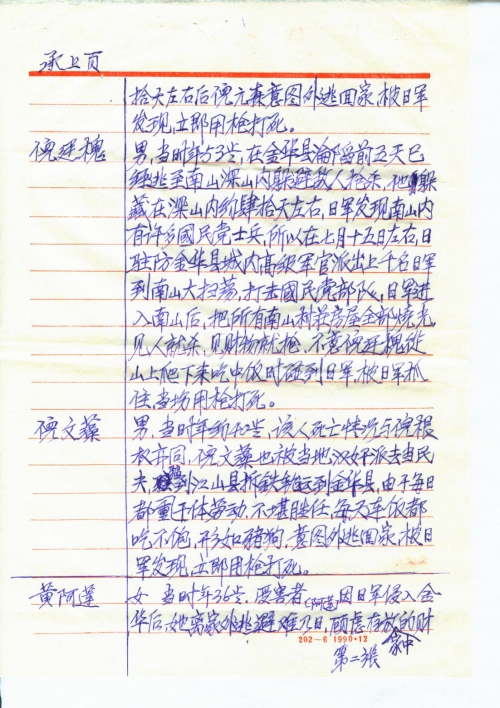 承上页
拾天左右后倪元森意图外逃回家,被日军
发现立即用枪打死。
倪廷槐 男,当时年53岁,在金华县沦陷前五天已
经逃至南山深山内躲避敌人枪杀,他躲
藏在深山内约肆拾天左右,日军发现南山内
有许多國民党士兵,所以在七月十五日左右,日
驻防金华县城内高级军官派出上千名日军
到南山大扫荡,打击國民党部队,日军进
入南山后,把所有南山村茅房屋全部烧光
见人就杀,见财物就抢,不意倪廷槐從
山上爬下来吃中饭时碰到日军,被日军抓
住,当场用枪打死。
倪文藻 男,当时年约40岁,该人死亡情况与倪根
权并同,倪文藻也被当地汉奸派去当民
夫,到江山县拆铁轨运到金华县,由于每日
都重于体劳动,不堪胜任,每天车饭都
吃不饱,形如猪狗,意图外逃回家,被日
军发现,立即用枪打死。
黄阿莲 女 当时年36岁,受害者(阿莲)因日军侵入金
华后,她离家外逃避难刀日,顾虑存放的财
家中
202-6 1990·12
第二張